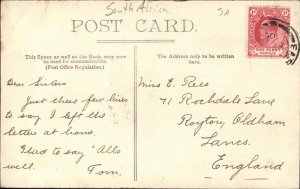 South Africa
SA
POST CARD.
This Space as well as the Back, may now
be used for communication.
(Post Office Regulation.)
The Address only to be written
here.
Dear Sisters
Just these few lines
to say I left the
letters at home.
Glad to say "Alls
well.
Tom.
Miss E. Rees
71 Rochdale Lane
Royton, Oldham
Lancs.
England